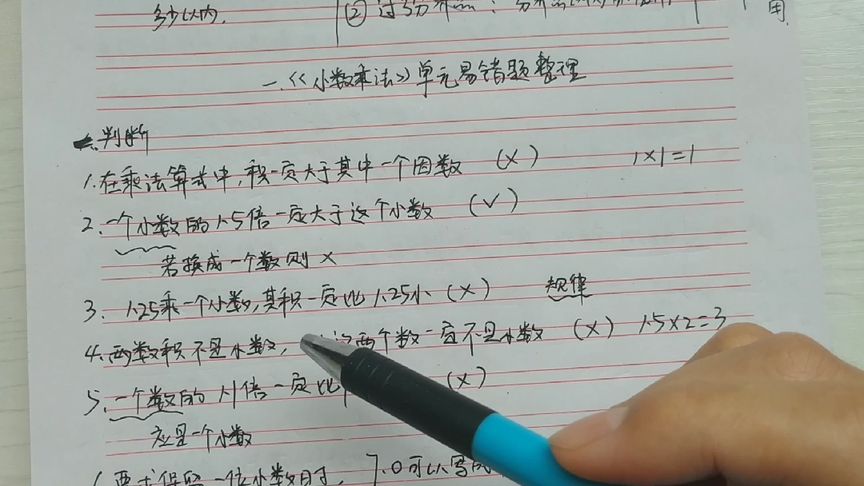 多少以内.
② 过
用.
一.《小数乘法》单元易错题整理
一、判断
1.在乘法算式中,积一定大于其中一个因数 (×) 1×1=1
2.一个小数的1.5倍一定大于这个小数 (√)
若换成一个数则×
3. 1.25乘一个小数,其积一定比1.25小 (×) 规律
4.两数积不是小数, 这两个数一定不是小数 (×) 1.5×2=3
5.一个数的1.1倍一定比 (×)
应是一个小数
要求保留一位小数时, 7.0可以写成